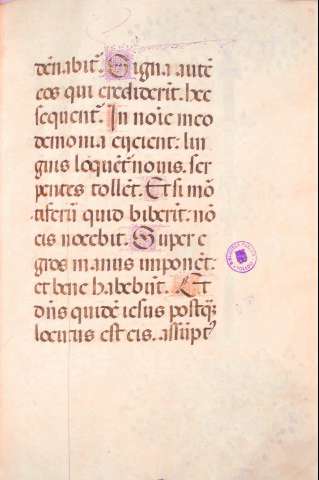 dēnabit᷑. Signa autē
eos qui crediderīt. hec
sequent᷑. In noīe meo
demonia eijcient: lin
guis loquēt᷑ nouis. ser
pentes tollēt. Et si mō
tiferū quid biberīt: nō
eis nocebit. Super e
gros manus imponēt:
et bene habebūt. Et
dn̄s quidē iesus postqꝫ
locutus est eis. assūpt᷒